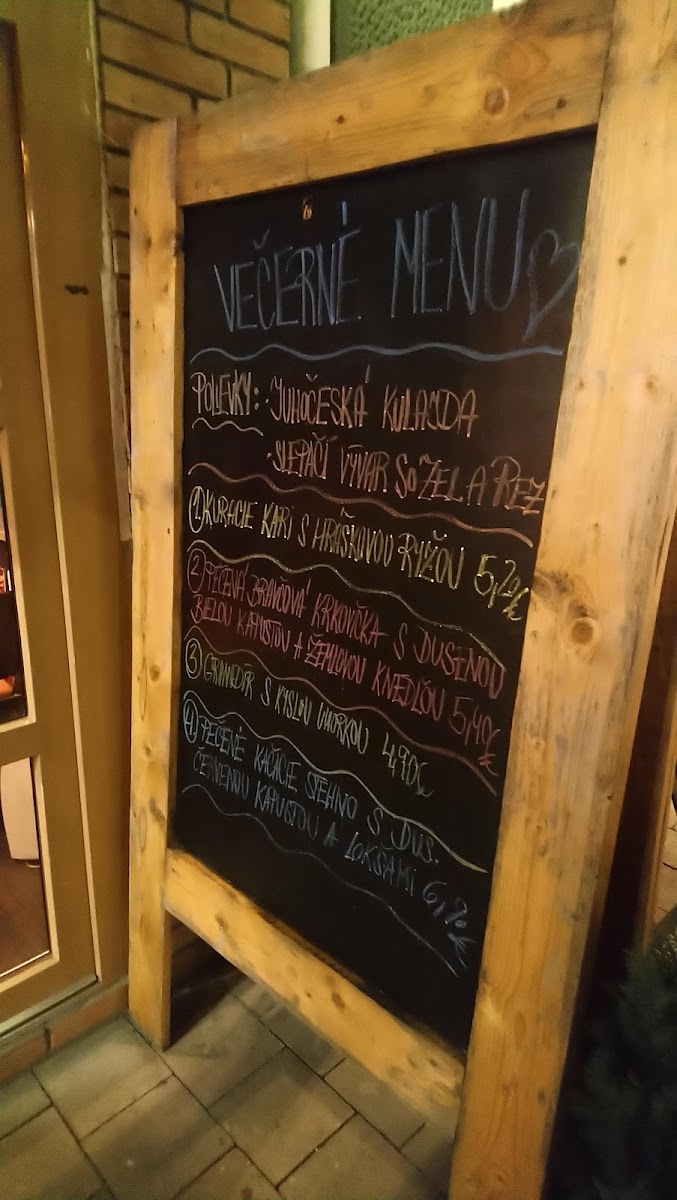 VEČERNÉ MENU
POLIEVKY: · JUHOČESKÁ KULAJDA
· SLEPAČÍ VÝVAR SO ZEL A REZ
1. KURACIE KARÍ S HRÁŠKOVOU RYŽOU 5,20€
2 PEČENÁ BRAVČOVÁ KRKOVIČKA S DUSENOU
BIELOU KAPUSTOU A ŽEMLOVOU KNEDĽOU 5,40€
3 GRANEDÍR S KYSLOU UHORKOU 4,90€
4 PEČENÉ KAČACIE STEHNO S DUS.
ČERVENOU KAPUSTOU A LOKŠAMI 6,90€